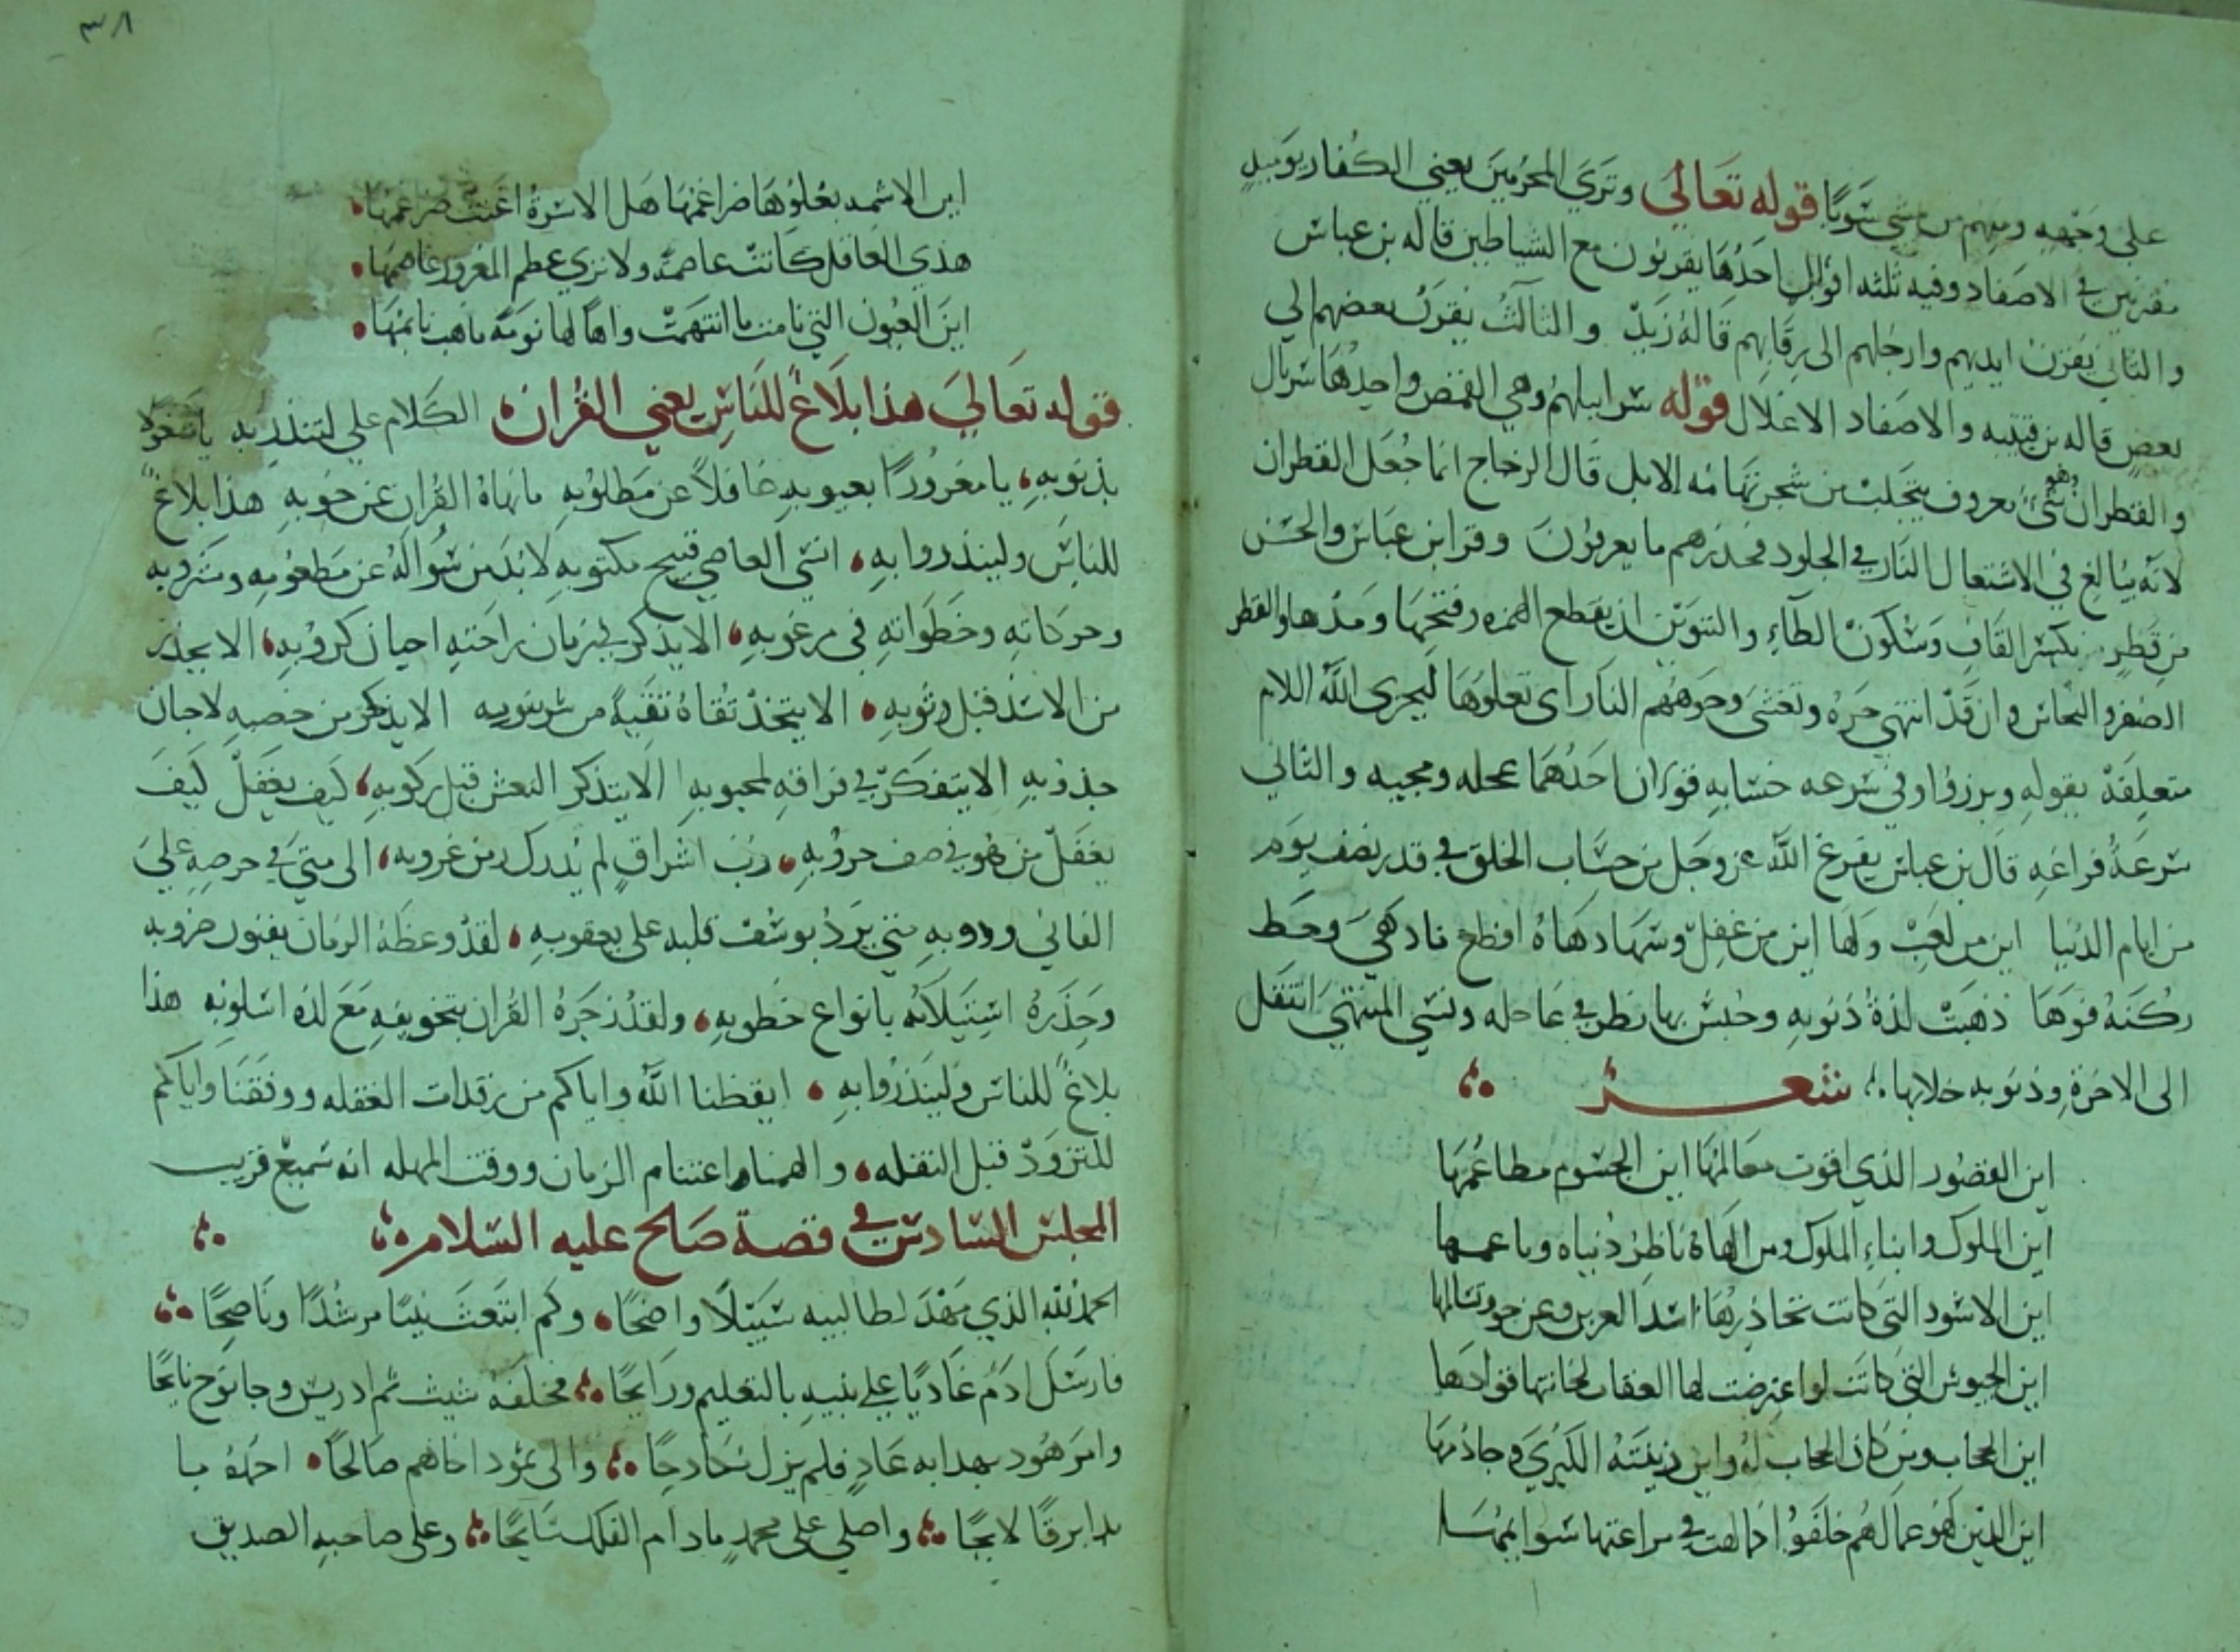 على وجهه ومنهم من مشى سويا قوله تعالى وترى المجرمين يعني الكفار يوميذ
مقرنين في الاصفاد وفيه ثلثه اقوال احدها يقرنون مع الشياطين قاله بن عباس
والثاني يقرن ايديهم وارجلهم الى رقابهم قاله زيد والثالث يقرن بعضهم الي
بعض قاله بن قتيبه والاصفاد الاغلال قوله سرابيلهم وهي القمص واحدها سربال
والقطران وهو شيء معروف يتحلب من شجر تهنا منه الابل قال الزجاج انما جعل القطران
لانه يبالغ في الاشتعال النار في الجلود فحذرهم ما يعرفون وقرا ابن عباس والحسن
من قطر بكسر القاف وسكون الطاء والتنوين ان بقطع الهمزه وفتحها ومدها والقطر
الصفر والنحاس وان قد انتهى حره وتغشى وجوههم النار اى تعلوها ليجزى الله اللام
متعلقة بقوله وبرزوا وفي سرعه حسابه قولان احدهما عجله ومجيه والثاني
سرعة فراغه قال بن عباس يفرغ الله عز وجل من حساب الخلق في قدر نصف يوم
من ايام الدنيا اين من لعب ولها اين من غفل وسها دهاه افظع نادهى وحط
ركنه فوها ذهبت لذة ذنوبه وحبس بها نظر في عاجله ونسي المنتهى انتقل
الى الاخرة وذنوبه خلابها شعر
اين القصور الذي اقوت معالمها اين الجسوم مطاعمها
اين الملوك وابناء الملوك ومن الهاه ناظر دنياه وناعمها
اين الاسود التي كانت تحاذرها اسد العرين وعن خوف تسالمها
اين الجيوش التي كانت لو اعترضت لها العقاب لخانتها قوادمها
اين الحجاب ومن كان الحجاب له واين زينته الكبرى وخادمها
اين الذين لهو عما لهم خلقوا كما لهت في مراعيها سوايمها
٣٨
اين الاسد يعلوها ضراغمها هل الاسرة اغنت ضراغمها
هذي المعاقل كانت عاصمة ولا نرى عصم المغرور عاصمها
اين العيون التي نامت ما انتهمت واها لها نومة ما هب نايمها
قوله تعالى هذا بلاغ للناس يعني القران الكلام علي لتنذر به يا مشغولا
بذنوبه يا مغرورا بعيوبه غافلا عن مطلوبه ما نهاه القران عن حوبه هذا بلاغ
للناس ولينذروا به انسي العاصي قبيح مكتوبه لا بد من سواله عن مطعومه ومشروبه
وحركاته وخطواته في مرغوبه الا يذكر في زمان راحته احيان كروبه الا يحذر
من الاسد قبل وثوبه الا يتخذ تقاة تقيه من شر ينوبه الا يذكر من خصبه لاحيان
جدوبه الا يتفكر في فراقه لمحبوبه الا يتذكر النعش قبل ركوبه كيف يغفل كيف
يغفل من هو في صف حروبه رب اشراق لم يدرك زمن غروبه الى متى في حرصه على
الفاني ودوبه متى يرد يوسف قلبه على يعقوبه لقد وعظه الزمان بفنون ضروبه
وحذره استيلائه بانواع خطوبه ولقد زجره القران بتخويفه مع لذه اسلوبه هذا
بلاغ للناس ولينذروا به ايقظنا الله واياكم من رقدات الغفله ووفقنا واياكم
للتزود قبل النقله والهمنا اغتنام الزمان ووقت المهله انه سميع قريب
المجلس السادس في قصة صالح عليه السلام
الحمد لله الذي مهد لطالبيه سبيلا واضحا وكم ابتعث نبيا مرشدا وناصحا
فارسل ادم غاديا علي بنيه بالتعليم ورايحا فخلفه شيث ثم ادريس وجا نوح نايحا
وامر هود بهدايه عاد فلم يزل كادحا والى ثمود اخاهم صالحا احمده ما
بدا برقا لايحا واصلي على محمد ما دام الفلك سابحا وعلى صاحبه الصديق